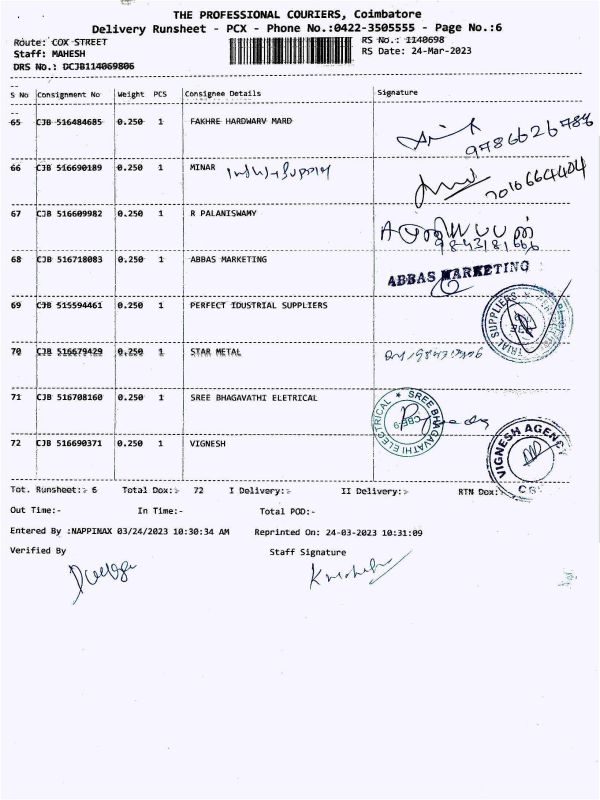 THE PROFESSIONAL COURIERS, Coimbatore
Delivery Runsheet - PCX - Phone No.:0422-3505555 - Page No.:6
Route: COX STREET
RS No.: 1140698
Staff: MAHESH
RS Date: 24-Mar-2023
DRS No.: DCJB114069806
S No Consignment No Weight PCS Consignee Details Signature
65 CJB 516484685 0.250 1 FAKHRE HARDWARV MARD
9786626786
66 CJB 516690189 0.250 1 MINAR
7016664404
67 CJB 516609982 0.250 1 R PALANISWAMY
9843181666
68 CJB 516718083 0.250 1 ABBAS MARKETING ABBAS MARKETING
69 CJB 515594461 0.250 1 PERFECT IDUSTRIAL SUPPLIERS
TRIAL SUPPLIERS
70 CJB 516679429 0.250 1 STAR METAL
71 CJB 516708160 0.250 1 SREE BHAGAVATHI ELETRICAL
SREE BHAGAVATHI ELECTRICAL
CBE-9
72 CJB 516690371 0.250 1 VIGNESH
VIGNESH AGENCY
Tot. Runsheet:- 6 Total Dox:- 72 I Delivery:- II Delivery:- RTN Dox:-
Out Time:- In Time:- Total POD:-
Entered By :NAPPINAX 03/24/2023 10:30:34 AM Reprinted On: 24-03-2023 10:31:09
Verified By Staff Signature